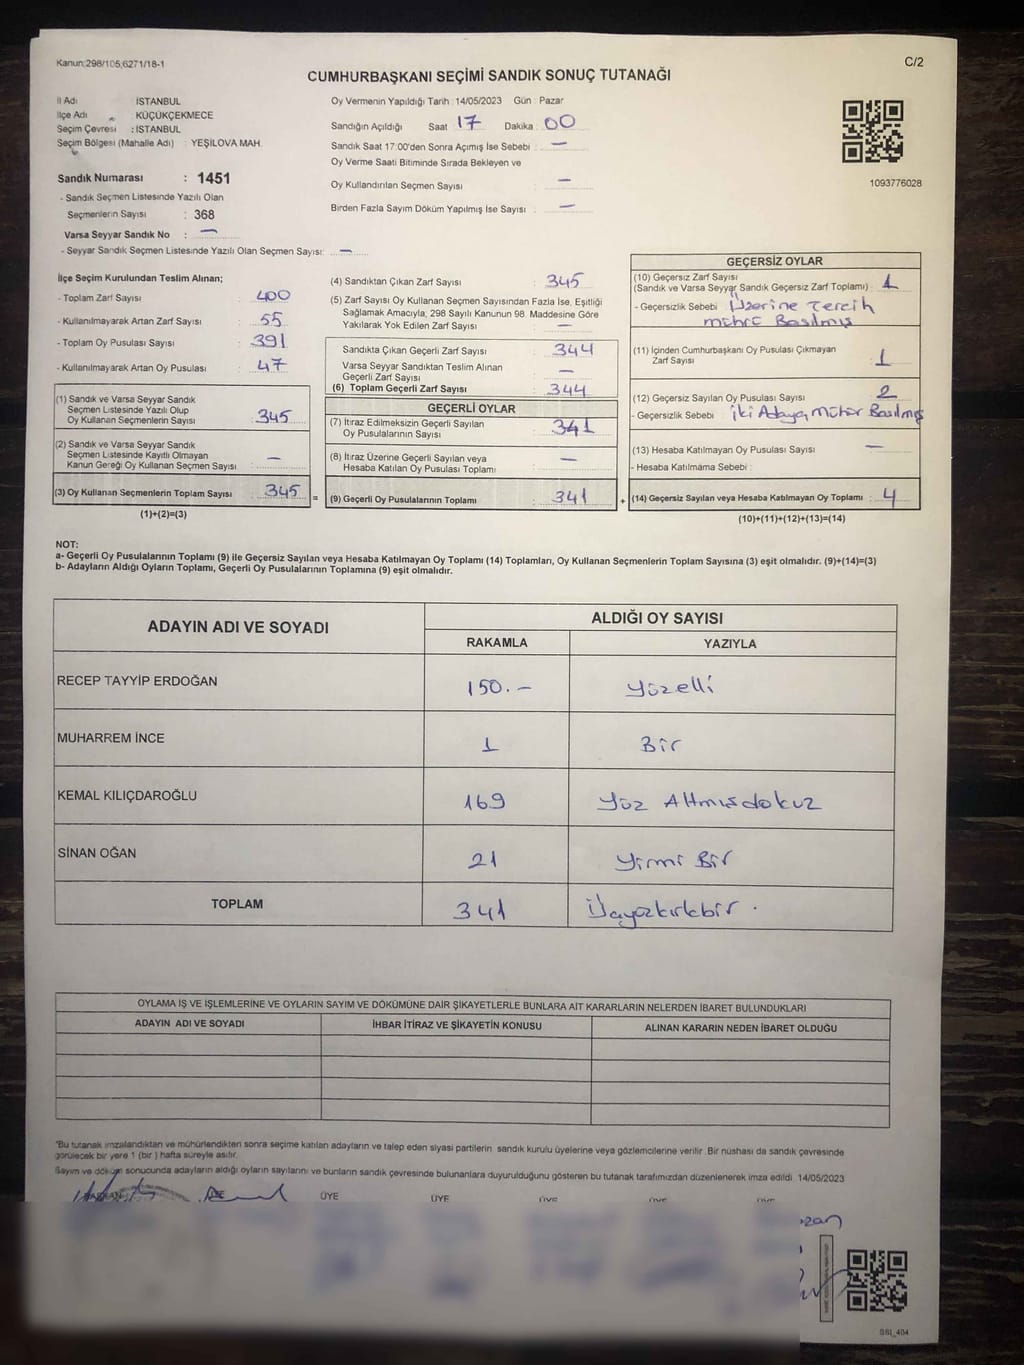 Kanun:298/105,6271/18-1
C/2
CUMHURBAŞKANI SEÇİMİ SANDIK SONUÇ TUTANAĞI
İl Adı : İSTANBUL
İlçe Adı : KÜÇÜKÇEKMECE
Seçim Çevresi : İSTANBUL
Seçim Bölgesi (Mahalle Adı) : YEŞİLOVA MAH.
Sandık Numarası : 1451
- Sandık Seçmen Listesinde Yazılı Olan
Seçmenlerin Sayısı : 368
Varsa Seyyar Sandık No : —
- Seyyar Sandık Seçmen Listesinde Yazılı Olan Seçmen Sayısı: —
Oy Vermenin Yapıldığı Tarih : 14/05/2023 Gün : Pazar
Sandığın Açıldığı Saat 17 Dakika 00
Sandık Saat 17:00'den Sonra Açımış İse Sebebi : —
Oy Verme Saati Bitiminde Sırada Bekleyen ve
Oy Kullandırılan Seçmen Sayısı : —
Birden Fazla Sayım Döküm Yapılmış İse Sayısı : —
1093776028
İlçe Seçim Kurulundan Teslim Alınan;
- Toplam Zarf Sayısı : 400
- Kullanılmayarak Artan Zarf Sayısı : 55
- Toplam Oy Pusulası Sayısı : 391
- Kullanılmayarak Artan Oy Pusulası : 47
(1) Sandık ve Varsa Seyyar Sandık
Seçmen Listesinde Yazılı Olup
Oy Kullanan Seçmenlerin Sayısı : 345
(2) Sandık ve Varsa Seyyar Sandık
Seçmen Listesinde Kayıtlı Olmayan
Kanun Gereği Oy Kullanan Seçmen Sayısı : —
(3) Oy Kullanan Seçmenlerin Toplam Sayısı : 345 =
(1)+(2)=(3)
(4) Sandıktan Çıkan Zarf Sayısı : 345
(5) Zarf Sayısı Oy Kullanan Seçmen Sayısından Fazla İse, Eşitliği
Sağlamak Amacıyla; 298 Sayılı Kanunun 98. Maddesine Göre
Yakılarak Yok Edilen Zarf Sayısı : —
Sandıkta Çıkan Geçerli Zarf Sayısı : 344
Varsa Seyyar Sandıktan Teslim Alınan
Geçerli Zarf Sayısı : —
(6) Toplam Geçerli Zarf Sayısı : 344
GEÇERLİ OYLAR
(7) İtiraz Edilmeksizin Geçerli Sayılan
Oy Pusulalarının Sayısı : 341
(8) İtiraz Üzerine Geçerli Sayılan veya
Hesaba Katılan Oy Pusulası Toplamı : —
(9) Geçerli Oy Pusulalarının Toplamı : 341 +
GEÇERSİZ OYLAR
(10) Geçersiz Zarf Sayısı
(Sandık ve Varsa Seyyar Sandık Geçersiz Zarf Toplamı) : 1
- Geçersizlik Sebebi : Üzerine Tercih
mührü Basılmış
(11) İçinden Cumhurbaşkanı Oy Pusulası Çıkmayan
Zarf Sayısı : 1
(12) Geçersiz Sayılan Oy Pusulası Sayısı : 2
- Geçersizlik Sebebi : İki Adaya Mühür Basılmış
(13) Hesaba Katılmayan Oy Pusulası Sayısı : —
- Hesaba Katılmama Sebebi :
(14) Geçersiz Sayılan veya Hesaba Katılmayan Oy Toplamı : 4
(10)+(11)+(12)+(13)=(14)
NOT:
a- Geçerli Oy Pusulalarının Toplamı (9) ile Geçersiz Sayılan veya Hesaba Katılmayan Oy Toplamı (14) Toplamları, Oy Kullanan Seçmenlerin Toplam Sayısına (3) eşit olmalıdır. (9)+(14)=(3)
b- Adayların Aldığı Oyların Toplamı, Geçerli Oy Pusulalarının Toplamına (9) eşit olmalıdır.
ADAYIN ADI VE SOYADI
ALDIĞI OY SAYISI
RAKAMLA YAZIYLA
RECEP TAYYİP ERDOĞAN 150.— Yüzelli
MUHARREM İNCE 1 Bir
KEMAL KILIÇDAROĞLU 169 Yüz Altmışdokuz
SİNAN OĞAN 21 Yirmi Bir
TOPLAM 341 Üçyüzkırkbir.
OYLAMA İŞ VE İŞLEMLERİNE VE OYLARIN SAYIM VE DÖKÜMÜNE DAİR ŞİKAYETLERLE BUNLARA AİT KARARLARIN NELERDEN İBARET BULUNDUKLARI
ADAYIN ADI VE SOYADI İHBAR İTİRAZ VE ŞİKAYETİN KONUSU ALINAN KARARIN NEDEN İBARET OLDUĞU
*Bu tutanak imzalandıktan ve mühürlendikten sonra seçime katılan adayların ve talep eden siyasi partilerin sandık kurulu üyelerine veya gözlemcilerine verilir. Bir nüshası da sandık çevresinde
görülecek bir yere 1 (bir) hafta süreyle asılır.
Sayım ve döküm sonucunda adayların aldığı oyların sayılarını ve bunların sandık çevresinde bulunanlara duyurulduğunu gösteren bu tutanak tarafımızdan düzenlenerek imza edildi. 14/05/2023
BAŞKAN ÜYE ÜYE ÜYE ÜYE ÜYE ÜYE
SSI_404